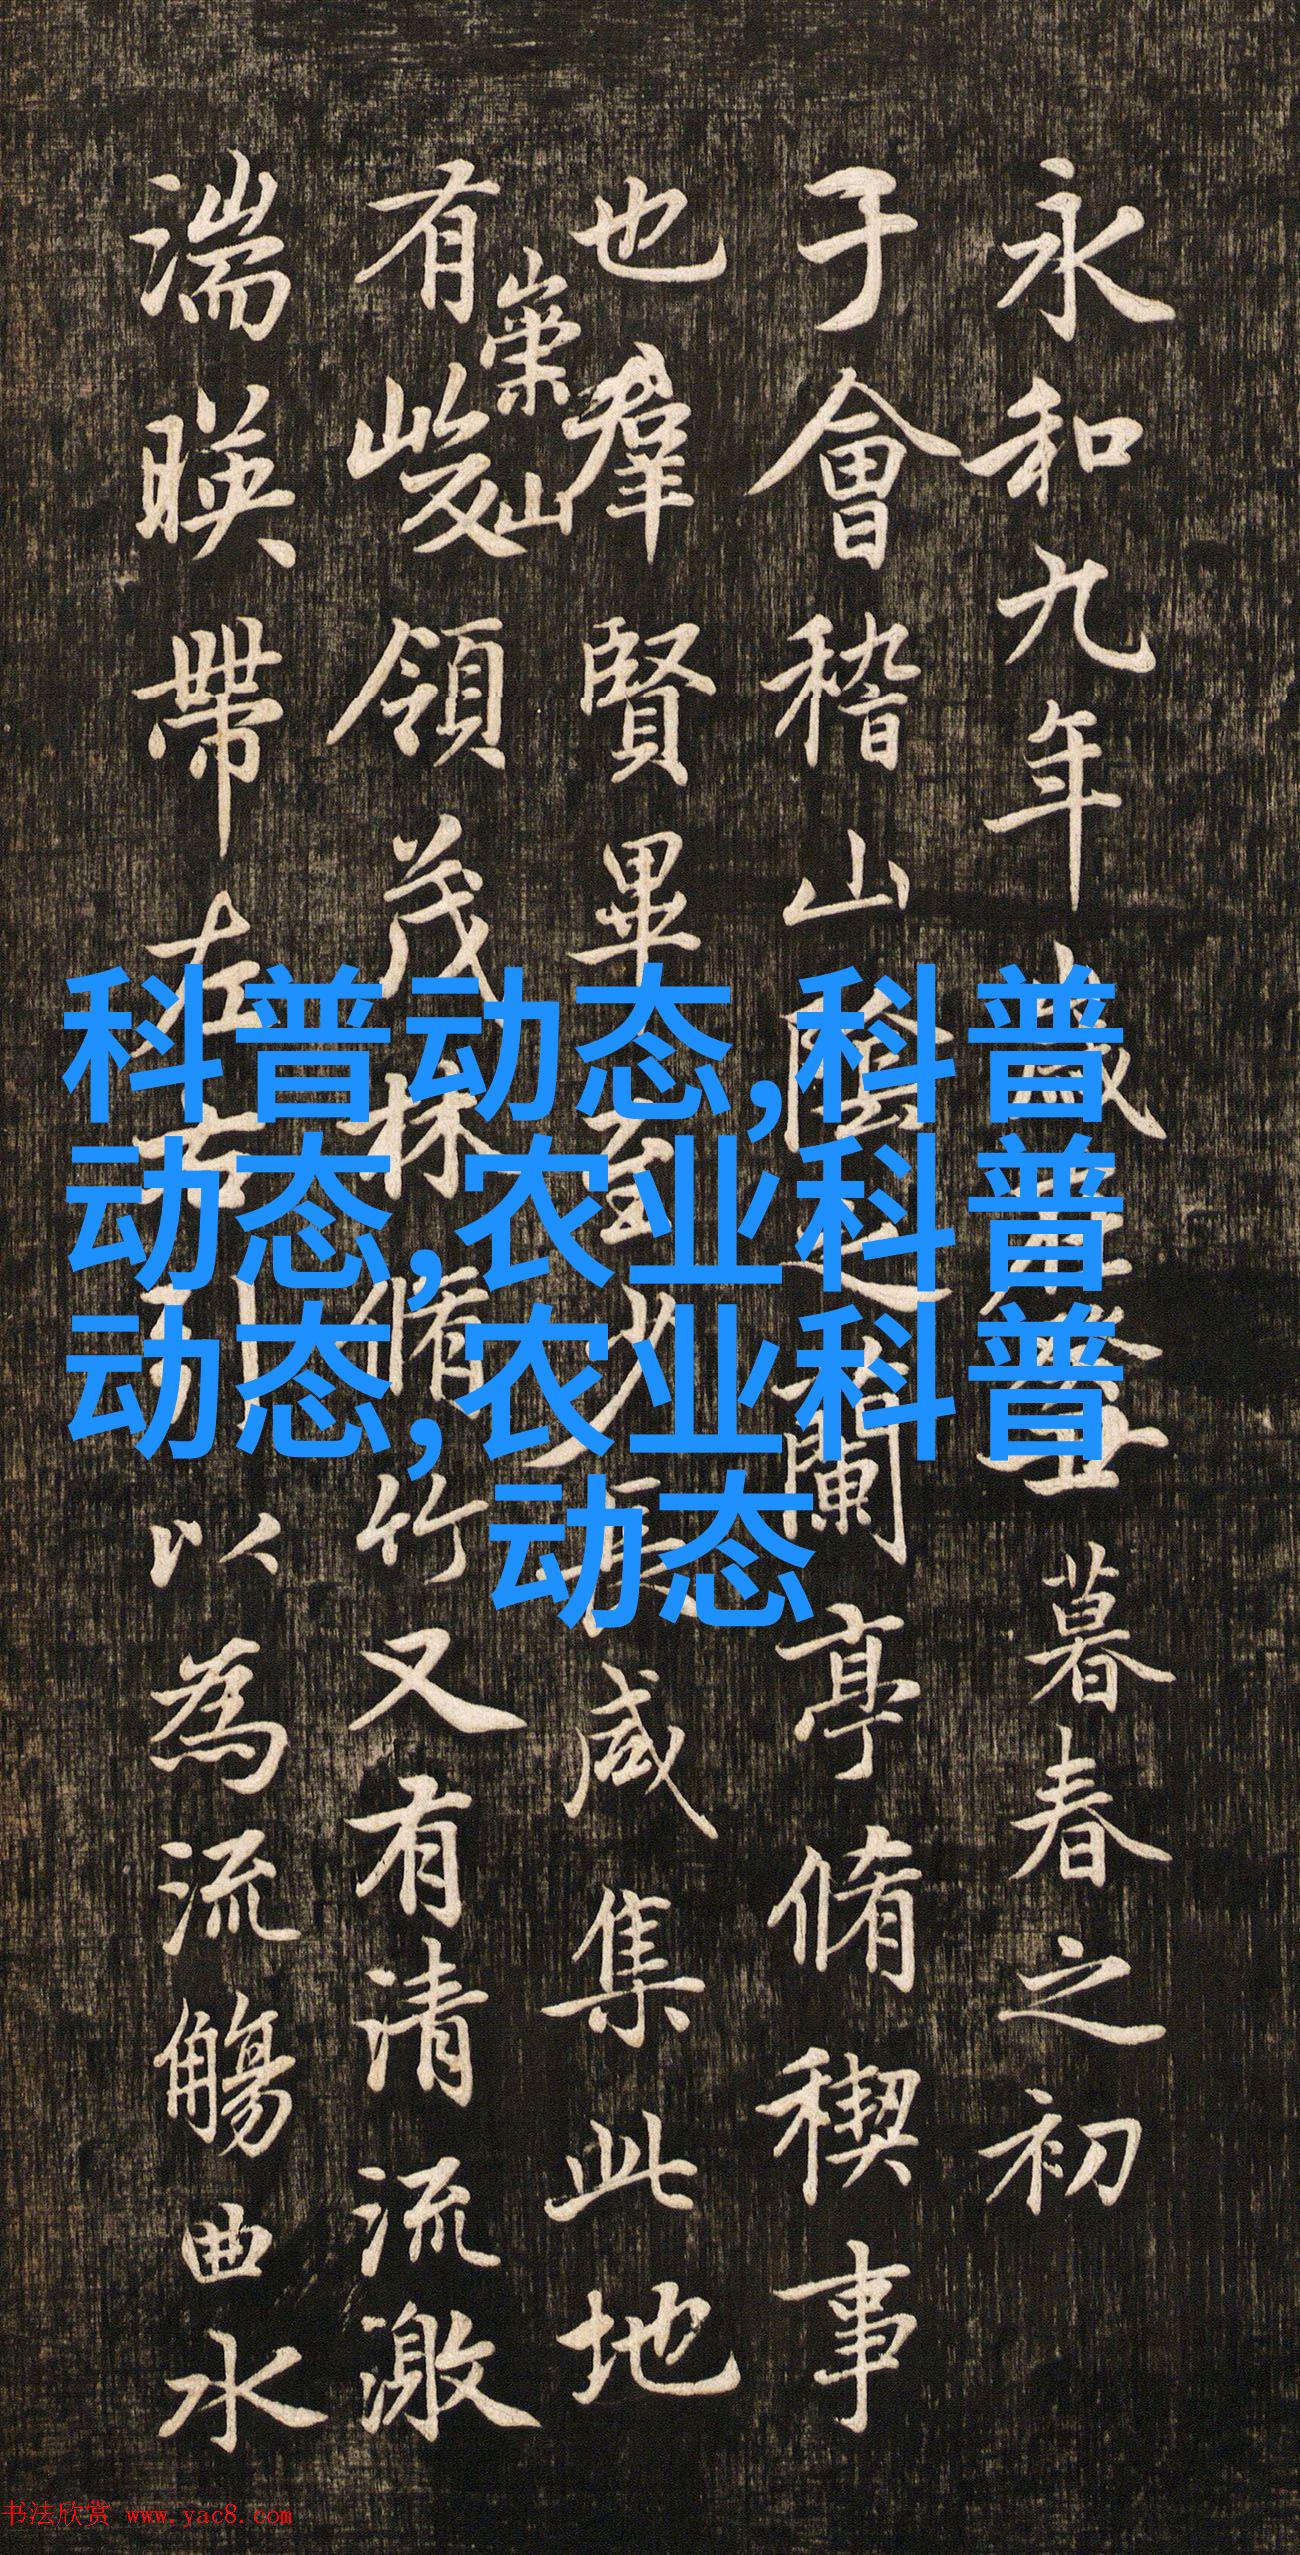 永和九年歲在癸丑暮春之初
于會稽山陰之蘭亭脩稧事
也羣賢畢至少長咸集此地
有崇山峻領茂林脩竹又有清流激
湍暎帶左右引以為流觴曲水
科普动态,科普
动态,农业科普
动态,农业科普
动态
书法欣赏 www.yac8.com